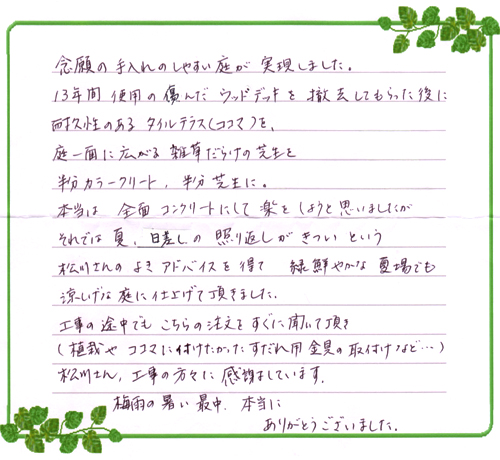 念願の手入れのしやすい庭が実現しました。
13年間使用の傷んだウッドデッキを撤去してもらった後に
耐久性のあるタイルテラス(ココマ)を、
庭一面に広がる雑草だらけの芝生を
半分カラークリート、半分芝生に。
本当は全面コンクリートにして楽をしようと思いましたが
それでは夏、日差しの照り返しがきついという
松川さんのよきアドバイスを得て 緑鮮やかな夏場でも
涼しげな庭に仕上げて頂きました。
工事の途中でもこちらの注文をすぐに聞いて頂き
(植栽やココマに付けたかったすだれ用金具の取付けなど…)
松川さん、工事の方々に感謝しています。
梅雨の暑い最中、本当に
ありがとうございました。